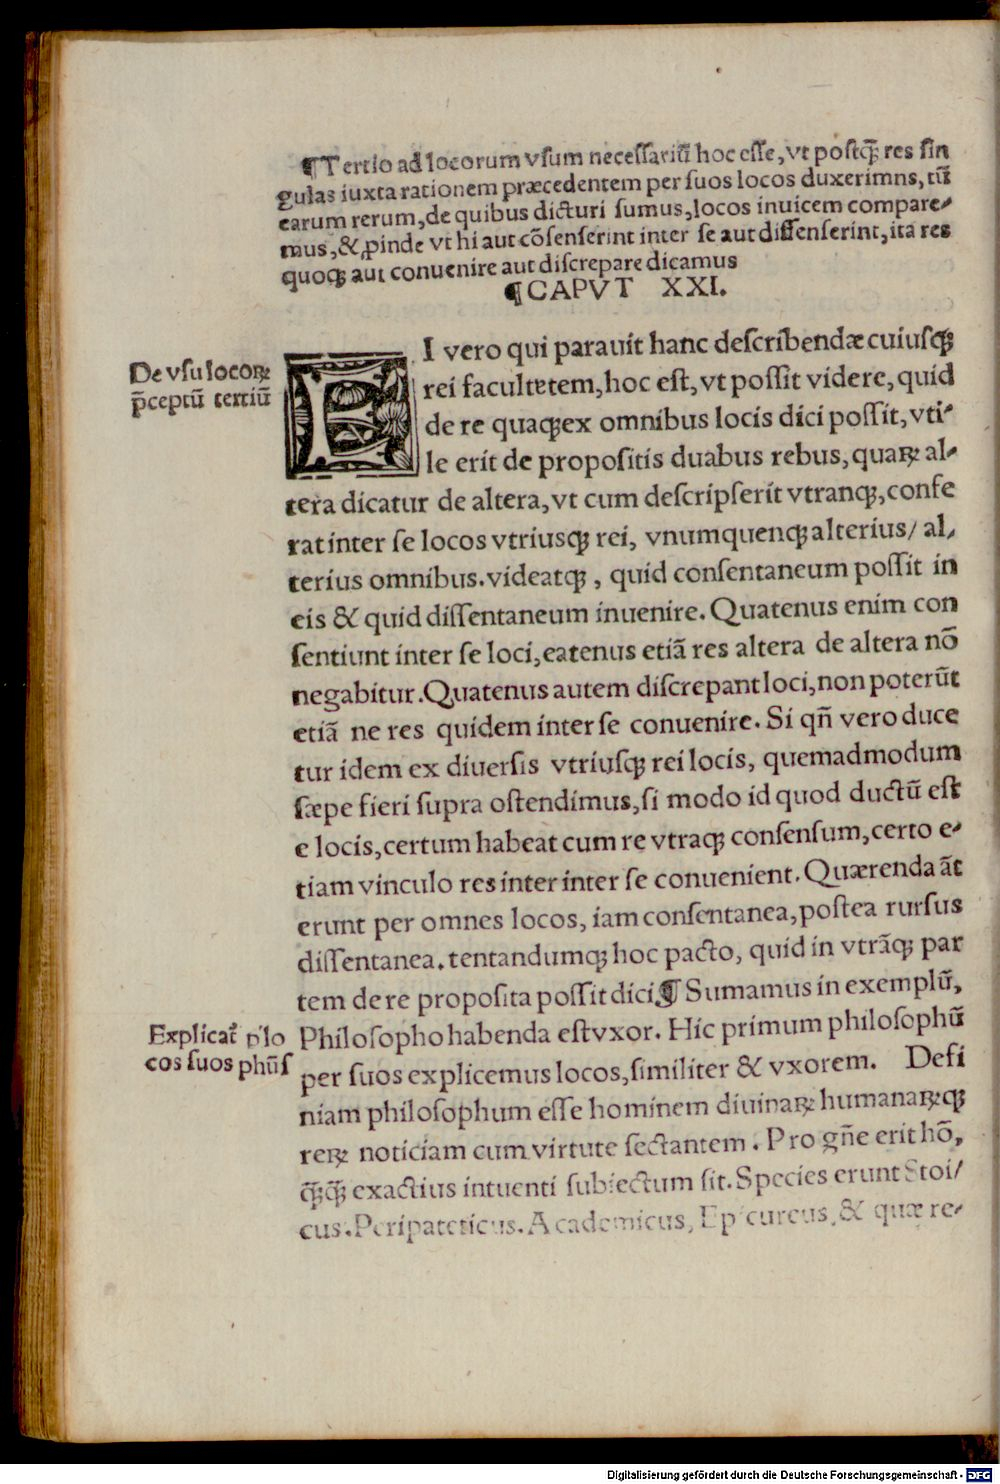 ¶Tertio ad locorum vſum neceſſariū hoc eſſe, vt poſtq̄ꝫ res ſin
gulas iuxta rationem præcedentem per ſuos locos duxerimns, tū
earum rerum, de quibus dicturi ſumus, locos inuicem compare-
mus, & ꝓinde vt hi aut cōſenſerint inter ſe aut diſſenſerint, ita res
quoqꝫ aut conuenire aut diſcrepare dicamus
¶CAPVT XXI.
De vſu locoꝝ
p̄ceptū tertiū
EI vero qui parauit hanc deſcribendæ cuiuſqꝫ
rei facultetem, hoc eſt, vt poſſit videre, quid
de re quaqꝫ ex omnibus locis dici poſſit, vti-
le erit de propoſitis duabus rebus, quaꝝ al-
tera dicatur de altera, vt cum deſcripſerit vtranqꝫ, confe
rat inter ſe locos vtriuſqꝫ rei, vnumquenqꝫ alterius/ al-
terius omnibus. videatqꝫ, quid conſentaneum poſſit in
eis & quid diſſentaneum inuenire. Quatenus enim con
ſentiunt inter ſe loci, eatenus etiā res altera de altera nō
negabitur. Quatenus autem diſcrepant loci, non poterūt
etiā ne res quidem inter ſe conuenire. Si qn̄ vero duce
tur idem ex diuerſis vtriuſqꝫ rei locis, quemadmodum
ſæpe fieri ſupra oſtendimus, ſi modo id quod ductū eſt
e locis, certum habeat cum re vtraqꝫ conſenſum, certo e-
tiam vinculo res inter inter ſe conuenient. Quærenda āt
erunt per omnes locos, iam conſentanea, poſtea rurſus
diſſentanea. tentandumqꝫ hoc pacto, quid in vtrāqꝫ par
tem de re propoſita poſſit dici¶ Sumamus in exemplū,
Explicat᷑ p̱ lo
cos ſuos phūſ
Philoſopho habenda eſt vxor. Hic primum philoſophū
per ſuos explicemus locos, ſimiliter & vxorem. Defi
niam philoſophum eſſe hominem diuinaꝝ humanaꝝqꝫ
reꝝ noticiam cum virtute ſectantem. Pro gn̄e erit hō,
q̄ꝫq̄ꝫ exactius intuenti ſubiectum ſit. Species erunt Stoi/
cus. Peripateticus. Academicus, Epicureus, & quæ re-
Digitalisierung gefördert durch die Deutsche Forschungsgemeinschaft - DFG